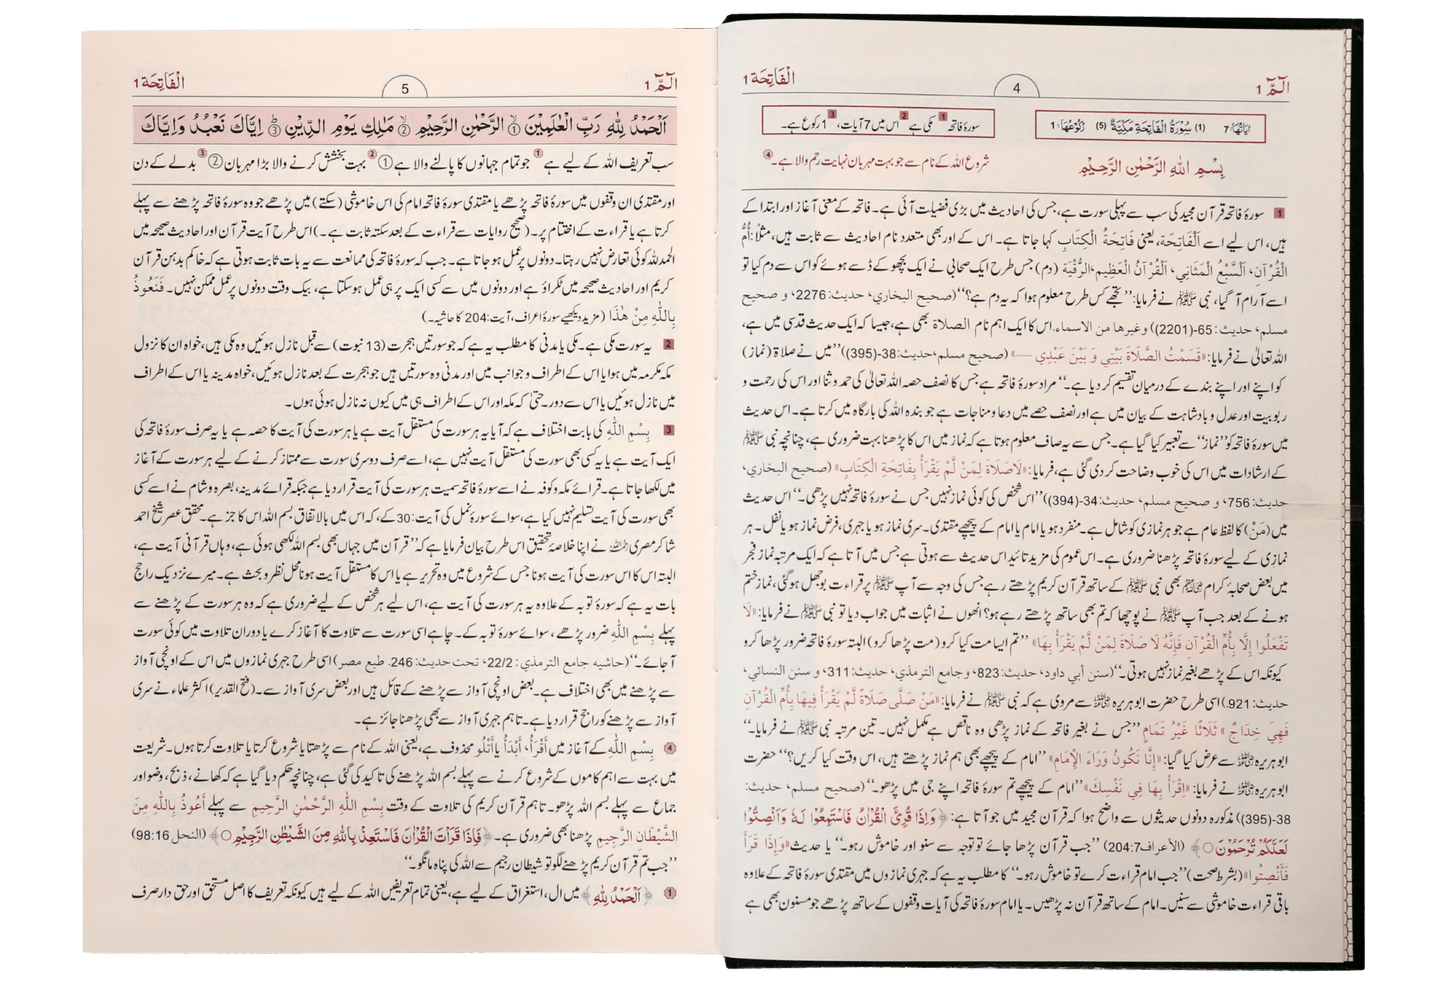 الٓمّٓ 1
4
اَلْفَاتِحَة 1
اٰيَاتُهَا: 7 (1) سُوْرَةُ الْفَاتِحَةِ مَكِّيَّةٌ (5) رُكُوْعُهَا: 1
سورۂ فاتحہ 1 مکی ہے 2 اس میں 7 آیات، 3 1 رکوع ہے۔
بِسْمِ اللهِ الرَّحْمٰنِ الرَّحِيْمِ
شروع اللہ کے نام سے جو بہت مہربان نہایت رحم والا ہے۔ 4
1 سورۂ فاتحہ قرآن مجید کی سب سے پہلی سورت ہے، جس کی احادیث میں بڑی فضیلت آئی ہے۔ فاتحہ کے معنی آغاز اور ابتدا کے
ہیں، اس لیے اسے اَلْفَاتِحَة، یعنی فَاتِحَةُ الْكِتَابِ کہا جاتا ہے۔ اس کے اور بھی متعدد نام احادیث سے ثابت ہیں، مثلاً: اُمُّ
الْقُرْآنِ، اَلسَّبْعُ الْمَثَانِي، اَلْقُرْآنُ الْعَظِيم، الرُّقْيَة (دم) جس طرح ایک صحابی نے ایک بچھو کے ڈسے ہوئے کو اس سے دم کیا تو
اسے آرام آ گیا، نبی ﷺ نے فرمایا: ’’تجھے کس طرح معلوم ہوا کہ یہ دم ہے؟‘‘ (صحيح البخاري، حديث: 2276، و صحيح
مسلم، حديث: 65-(2201) وغيرها من الاسماء. اس کا ایک اہم نام الصلاة بھی ہے، جیسا کہ ایک حدیث قدسی میں ہے،
اللہ تعالیٰ نے فرمایا: «قَسَمْتُ الصَّلَاةَ بَيْنِي وَ بَيْنَ عَبْدِي ......» (صحيح مسلم، حديث: 38-(395)) ’’میں نے صلاۃ (نماز)
کو اپنے اور اپنے بندے کے درمیان تقسیم کر دیا ہے۔‘‘ مراد سورۂ فاتحہ ہے جس کا نصف حصہ اللہ تعالیٰ کی حمد و ثنا اور اس کی رحمت و
ربوبیت اور عدل و بادشاہت کے بیان میں ہے اور نصف حصے میں دعا و مناجات ہے جو بندہ اللہ کی بارگاہ میں کرتا ہے۔ اس حدیث
میں سورۂ فاتحہ کو ’’نماز‘‘ سے تعبیر کیا گیا ہے۔ جس سے یہ صاف معلوم ہوتا ہے کہ نماز میں اس کا پڑھنا بہت ضروری ہے، چنانچہ نبی ﷺ
کے ارشادات میں اس کی خوب وضاحت کر دی گئی ہے، فرمایا: «لَا صَلَاةَ لِمَنْ لَّمْ يَقْرَأْ بِفَاتِحَةِ الْكِتَابِ» (صحيح البخاري،
حديث: 756، و صحيح مسلم، حديث: 34-(394)) ’’اس شخص کی کوئی نماز نہیں جس نے سورۂ فاتحہ نہیں پڑھی۔‘‘ اس حدیث
میں (مَنْ) کا لفظ عام ہے جو ہر نمازی کو شامل ہے۔ منفرد ہو یا امام یا امام کے پیچھے مقتدی۔ سری نماز ہو یا جہری، فرض نماز ہو یا نفل۔ ہر
نمازی کے لیے سورۂ فاتحہ پڑھنا ضروری ہے۔ اس عموم کی مزید تائید اس حدیث سے ہوتی ہے جس میں آتا ہے کہ ایک مرتبہ نماز فجر
میں بعض صحابۂ کرام بھی نبی ﷺ کے ساتھ قرآن کریم پڑھتے رہے جس کی وجہ سے آپ ﷺ پر قراءت بوجھل ہو گئی، نماز ختم
ہونے کے بعد جب آپ ﷺ نے پوچھا کہ تم بھی ساتھ پڑھتے رہے ہو؟ انھوں نے اثبات میں جواب دیا تو نبی ﷺ نے فرمایا: «لَا
تَفْعَلُوا إِلَّا بِأُمِّ الْقُرْآنِ فَإِنَّهُ لَا صَلَاةَ لِمَنْ لَّمْ يَقْرَأْ بِهَا» ’’تم ایسا مت کیا کرو (مت پڑھا کرو) البتہ سورۂ فاتحہ ضرور پڑھا کرو
کیونکہ اس کے پڑھے بغیر نماز نہیں ہوتی۔‘‘ (سنن أبي داود، حديث: 823، وجامع الترمذي، حديث: 311، و سنن النسائي،
حديث: 921) اسی طرح حضرت ابو ہریرہ سے مروی ہے کہ نبی ﷺ نے فرمایا: «مَنْ صَلّٰى صَلَاةً لَّمْ يَقْرَأْ فِيهَا بِأُمِّ الْقُرْآنِ
فَهِيَ خِدَاجٌ» ثَلَاثًا غَيْرُ تَمَامٍ ’’جس نے بغیر فاتحہ کے نماز پڑھی وہ ناقص ہے مکمل نہیں۔ تین مرتبہ نبی ﷺ نے فرمایا۔‘‘
ابو ہریرہ سے عرض کیا گیا: «إِنَّا نَكُونُ وَرَاءَ الْإِمَامِ» ’’امام کے پیچھے بھی ہم نماز پڑھتے ہیں، اس وقت کیا کریں؟‘‘ حضرت
ابو ہریرہ نے فرمایا: «اِقْرَأْ بِهَا فِي نَفْسِكَ» ’’امام کے پیچھے تم سورۂ فاتحہ اپنے جی میں پڑھو۔‘‘ (صحيح مسلم، حديث:
38-(395)) مذکورہ دونوں حدیثوں سے واضح ہوا کہ قرآن مجید میں جو آتا ہے: ﴿وَاِذَا قُرِئَ الْقُرْاٰنُ فَاسْتَمِعُوْا لَهٗ وَاَنْصِتُوْا
لَعَلَّكُمْ تُرْحَمُوْنَ﴾ (الأعراف 204:7) ’’جب قرآن پڑھا جائے تو توجہ سے سنو اور خاموش رہو۔‘‘ یا حدیث «وَإِذَا قَرَأَ
فَأَنْصِتُوا» (بشرط صحت) ’’جب امام قراءت کرے تو خاموش رہو۔‘‘ کا مطلب یہ ہے کہ جہری نمازوں میں مقتدی سورۂ فاتحہ کے علاوہ
باقی قراءت خاموشی سے سنیں۔ امام کے ساتھ قرآن نہ پڑھیں۔ یا امام سورۂ فاتحہ کی آیات وقفوں کے ساتھ پڑھے جو مسنون بھی ہے
الٓمّٓ 1
5
اَلْفَاتِحَة 1
اَلْحَمْدُ لِلّٰهِ رَبِّ الْعٰلَمِيْنَ ① الرَّحْمٰنِ الرَّحِيْمِ ② مٰلِكِ يَوْمِ الدِّيْنِ ③ اِيَّاكَ نَعْبُدُ وَاِيَّاكَ
سب تعریف اللہ کے لیے ہے 1 جو تمام جہانوں کا پالنے والا ہے ① 2 بہت بخشش کرنے والا بڑا مہربان ② 3 بدلے کے دن
اور مقتدی ان وقفوں میں سورۂ فاتحہ پڑھے یا مقتدی سورۂ فاتحہ امام کی اس خاموشی (سکتے) میں پڑھے جو وہ سورۂ فاتحہ پڑھنے سے پہلے
کرتا ہے یا قراءت کے اختتام پر۔ (صحیح روایات سے قراءت کے بعد سکتہ ثابت ہے۔) اس طرح آیت قرآن اور احادیث صحیحہ میں
الحمد للہ کوئی تعارض نہیں رہتا۔ دونوں پر عمل ہو جاتا ہے۔ جب کہ سورۂ فاتحہ کی ممانعت سے یہ بات ثابت ہوتی ہے کہ خاکم بدہن قرآن
کریم اور احادیث صحیحہ میں ٹکراؤ ہے اور دونوں میں سے کسی ایک پر ہی عمل ہو سکتا ہے، بیک وقت دونوں پر عمل ممکن نہیں۔ فَنَعُوذُ
بِاللّٰهِ مِنْ هٰذَا (مزید دیکھیے سورۂ اعراف، آیت: 204 کا حاشیہ۔)
2 یہ سورت مکی ہے۔ مکی یا مدنی کا مطلب یہ ہے کہ جو سورتیں ہجرت (13 نبوت) سے قبل نازل ہوئیں وہ مکی ہیں، خواہ ان کا نزول
مکہ مکرمہ میں ہوا یا اس کے اطراف و جوانب میں اور مدنی وہ سورتیں ہیں جو ہجرت کے بعد نازل ہوئیں، خواہ مدینہ یا اس کے اطراف
میں نازل ہوئیں یا اس سے دور۔ حتیٰ کہ مکہ اور اس کے اطراف ہی میں کیوں نہ نازل ہوئی ہوں۔
3 بِسْمِ اللّٰهِ کی بابت اختلاف ہے کہ آیا یہ ہر سورت کی مستقل آیت ہے یا ہر سورت کی آیت کا حصہ ہے یا یہ صرف سورۂ فاتحہ کی
ایک آیت ہے یا یہ کسی بھی سورت کی مستقل آیت نہیں ہے، اسے صرف دوسری سورت سے ممتاز کرنے کے لیے ہر سورت کے آغاز
میں لکھا جاتا ہے۔ قرائے مکہ و کوفہ نے اسے سورۂ فاتحہ سمیت ہر سورت کی آیت قرار دیا ہے جبکہ قرائے مدینہ، بصرہ و شام نے اسے کسی
بھی سورت کی آیت تسلیم نہیں کیا ہے، سوائے سورۂ نمل کی آیت: 30 کے، کہ اس میں بالاتفاق بسم اللہ اس کا جز ہے۔ محقق عصر شیخ احمد
شاکر مصری نے اپنا خلاصۂ تحقیق اس طرح بیان فرمایا ہے کہ ’’قرآن میں جہاں بھی بسم اللہ لکھی ہوئی ہے، وہاں قرآنی آیت ہے،
البتہ اس کا اس سورت کی آیت ہونا جس کے شروع میں وہ تحریر ہے یا اس کا مستقل آیت ہونا محل نظر و بحث ہے۔ میرے نزدیک راجح
بات یہ ہے کہ سورۂ توبہ کے علاوہ یہ ہر سورت کی آیت ہے، اس لیے ہر شخص کے لیے ضروری ہے کہ وہ ہر سورت کے پڑھنے سے
پہلے بِسْمِ اللّٰهِ ضرور پڑھے، سوائے سورۂ توبہ کے۔ چاہے اسی سورت سے تلاوت کا آغاز کرے یا دوران تلاوت میں کوئی سورت
آ جائے۔‘‘ (حاشيه جامع الترمذي: 22/2، تحت حديث: 246. طبع مصر) اسی طرح جہری نمازوں میں اس کے اونچی آواز
سے پڑھنے میں بھی اختلاف ہے۔ بعض اونچی آواز سے پڑھنے کے قائل ہیں اور بعض سری آواز سے۔ (فتح القدیر) اکثر علماء نے سری
آواز سے پڑھنے کو راجح قرار دیا ہے۔ تاہم جہری آواز سے بھی پڑھنا جائز ہے۔
4 بِسْمِ اللّٰهِ کے آغاز میں أَقْرَأُ، أَبْدَأُ یا أَتْلُو محذوف ہے، یعنی اللہ کے نام سے پڑھتا یا شروع کرتا یا تلاوت کرتا ہوں۔ شریعت
میں بہت سے اہم کاموں کے شروع کرنے سے پہلے بسم اللہ پڑھنے کی تاکید کی گئی ہے، چنانچہ حکم دیا گیا ہے کہ کھانے، ذبح، وضو اور
جماع سے پہلے بسم اللہ پڑھو۔ تاہم قرآن کریم کی تلاوت کے وقت بِسْمِ اللّٰهِ الرَّحْمٰنِ الرَّحِيمِ سے پہلے أَعُوذُ بِاللّٰهِ مِنَ
الشَّيْطَانِ الرَّجِيمِ پڑھنا بھی ضروری ہے۔ ﴿فَاِذَا قَرَاْتَ الْقُرْاٰنَ فَاسْتَعِذْ بِاللّٰهِ مِنَ الشَّيْطٰنِ الرَّجِيْمِ﴾ (النحل 98:16)
’’جب تم قرآن کریم پڑھنے لگو تو شیطان رجیم سے اللہ کی پناہ مانگو۔‘‘
1 ﴿اَلْحَمْدُ لِلّٰهِ﴾ میں ال، استغراق کے لیے ہے، یعنی تمام تعریفیں اللہ کے لیے ہیں کیونکہ تعریف کا اصل مستحق اور حق دار صرف